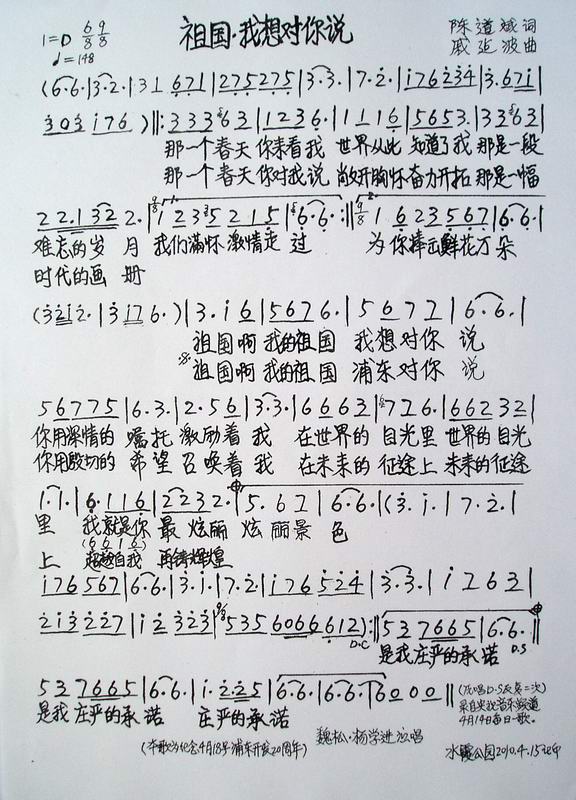 祖国·我想对你说
1=D 6/8 9/8
♩=148
陈道斌词
戚建波曲
(6·6·|3·2·|3 1 671|275275|3·3·|7·2·|i76234|3·67i|
303 i76 )‖:333 63|1236·|111 6|5653·|33 63|
那一个春天你来看我 世界从此 知道了我 那是一段
那一个春天你对我说 敞开胸怀奋力开拓 那是一幅
22·132 2·|1 235215|6·6·:‖1 623567|6·6·|
难忘的岁 月 我们满怀激情走 过 为你捧出鲜花万朵
时代的画 册
(32i2·|3i76·)|3·i6|5676·|5 672|6·6·|
祖国啊 我的祖国 我想对你 说
祖国啊 我的祖国 浦东对你 说
56775|6·3·|2·56|3·3·|6663|726·|66232|
你用深情的 嘱托 激励着 我 在世界的 目光里 世界的目光
你用殷切的 希望 召唤着 我 在未来的 征途上 未来的征途
1·1·|6·116|2232·|5·61|6·6·|(3·i·|7·2·|
里 我就是你 最 炫丽 炫丽景 色
(6 6 1 6)
上 超越自我 再铸辉煌
i76567|6·6·|3·i·|7·2·|i76524|3·3·|i763|
2i3227|i2 323|535 6066612):‖53 7665|6·6·‖
D.C
是我庄严的承诺 D.S
53 7665|6·6·|i·225|6·6·|6·6·|6000‖
是我庄严的承 诺 庄严的承诺
(反唱D.S反复二次)
采自央视音乐频道
4月14日每日一歌。
魏松·杨学进 演唱
(本歌为纪念4月18号浦东开发20周年)
水霞公园2010.4.15